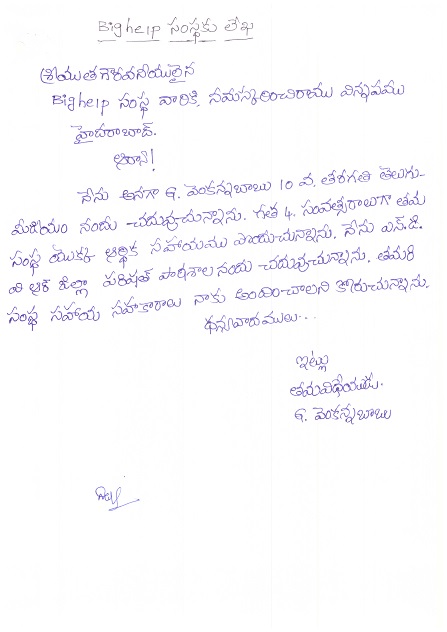 Bighelp సంస్థకు లేఖ
శ్రీయుత గౌరవనీయులైన
Bighelp సంస్థ వారికి, నమస్కరించిరాము విన్నపము
హైదరాబాద్.
ఆర్యా!
నేను అనగా G. వెంకన్నబాబు 10 వ. తరగతి తెలుగు-
మీడియం నందు చదువుచున్నాను. గత 4. సంవత్సరాలుగా తమ
సంస్థ యొక్క ఆర్థిక సహాయము పొందుచున్నాను. నేను ఎస్.డి.
వి ఆర్ జిల్లా పరిషత్ పాఠశాల నందు చదువుచున్నాను. తమరి
సంస్థ సహాయ సహకారాలు నాకు అందించాలని కోరుచున్నాను.
ధన్యవాదములు...
ఇట్లు
తమవిధేయుడు.
G. వెంకన్నబాబు